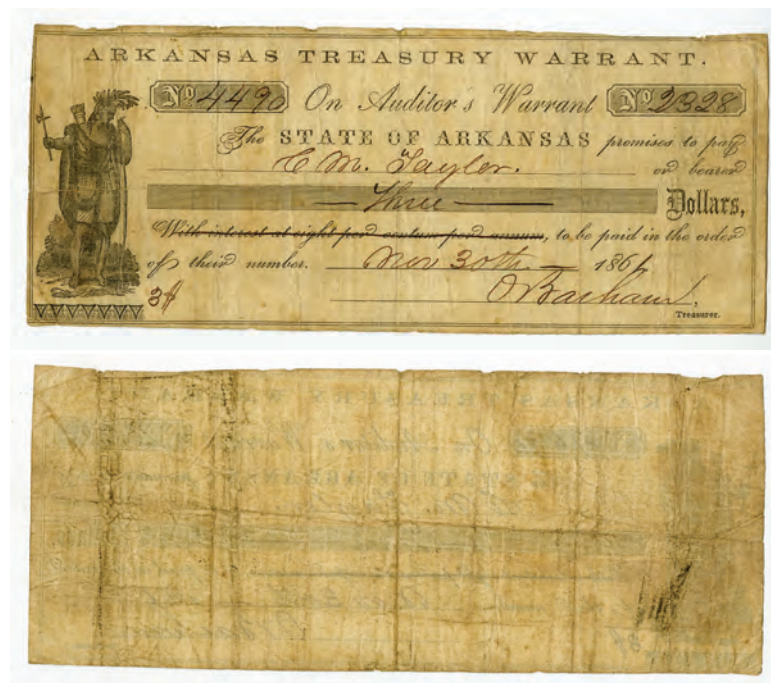 ARKANSAS TREASURY WARRANT.
No 4490 On Auditor's Warrant No 2328
The STATE OF ARKANSAS promises to pay
C M. Tayler. or bearer
Three Dollars,
With interest at eight per centum per annum, to be paid in the order
of their number. Nov 30th 1861
3$
O Basham,
Treasurer.